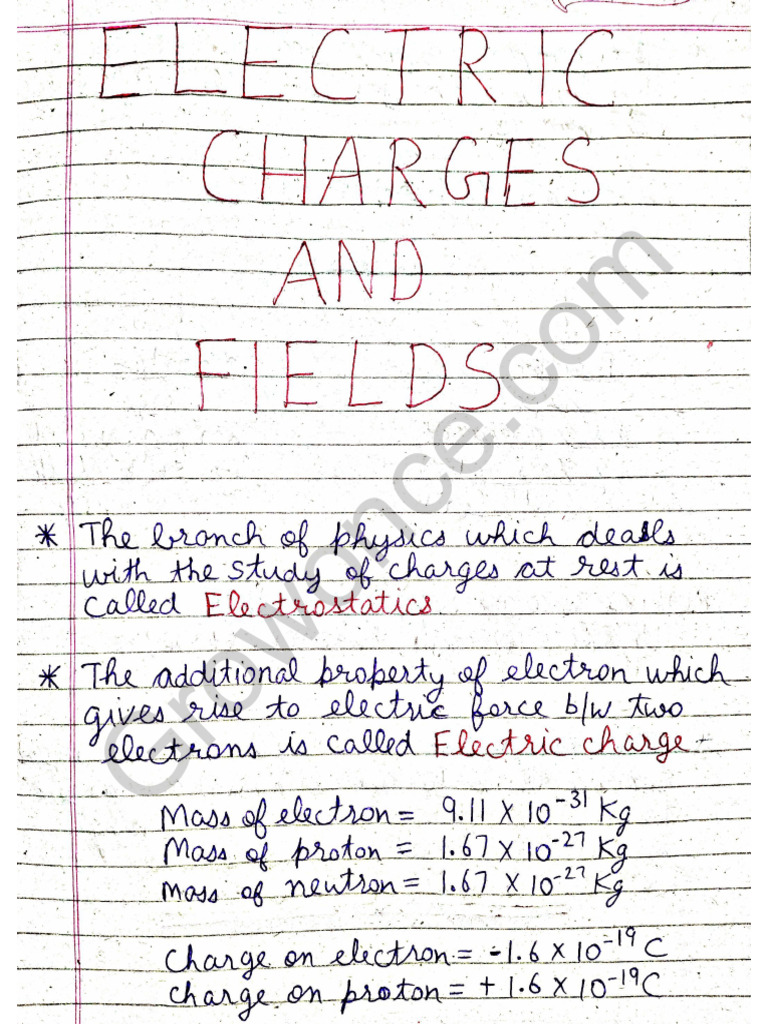 ELECTRIC
CHARGES
AND
FIELDS
* The branch of physics which deals
with the study of charges at rest is
called Electrostatics.
* The additional property of electron which
gives rise to electric force b/w two
electrons is called Electric charge.
Mass of electron = 9.11 × 10⁻³¹ Kg
Mass of proton = 1.67 × 10⁻²⁷ Kg
Mass of neutron = 1.67 × 10⁻²⁷ Kg
Charge on electron = -1.6 × 10⁻¹⁹ C
Charge on proton = + 1.6 × 10⁻¹⁹ C
Growonce.com